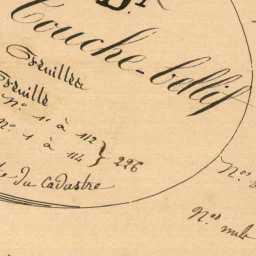 D.t
Touche-bellif
Feuilles
Feuille
N.° 1 à 112
N.° 1 à 114 } 226
du Cadastre
N.os
N.os